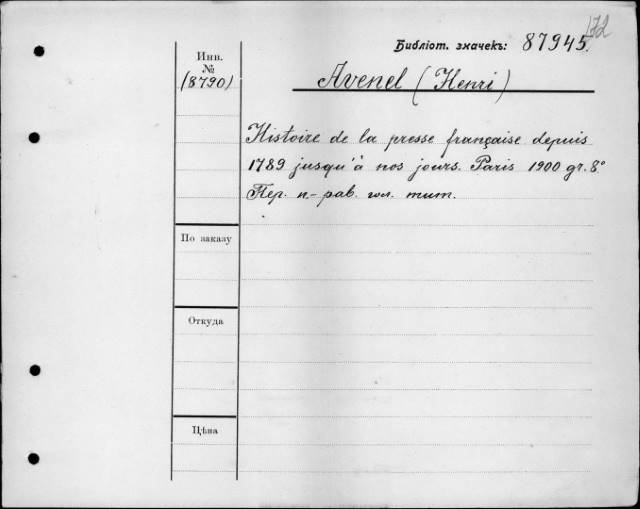 172
Библіот. значекъ: 87945.
Инв.
№
(8790)
Avenel (Henri)
Histoire de la presse française depuis
1789 jusqu'à nos jours. Paris 1900 gr. 8°
Кер. п.-раб. гол. тит.
По заказу
Откуда
Цѣна